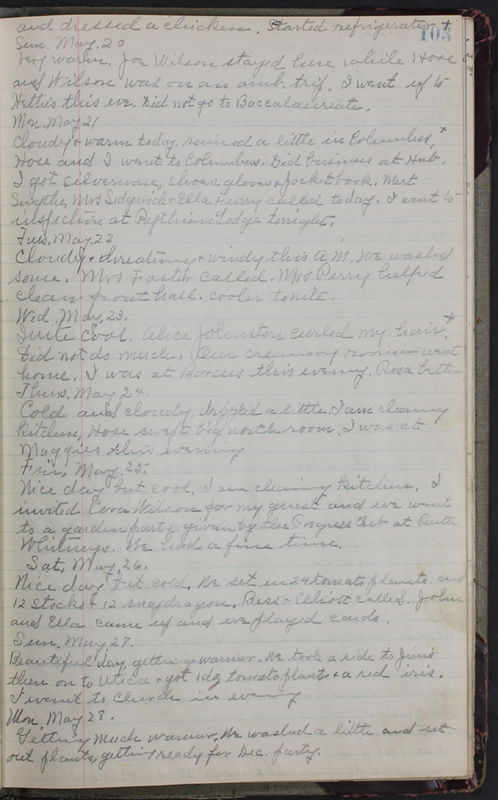 and dressed a chicken. Started refrigerator +
103
Sun. May. 20
Very warm. Joe Wilson stayed here while Hose
and Wilson was on an amb. trip. I went up to
Hettie's this eve. Did not go to Baccalaureate.
Mon. May 21
Cloudy & warm today. rained a little in Columbus, +
Hose and I went to Columbus. Did business at Hub.
I got silverware, shoes, gloves & pocket book. Mert
Mrs Sedgwick & Ella called today. I went to
inspection at Pythian Lodge tonight.
Tues. May. 22
Cloudy & threatening & windy this A.M. We washed
some. Mrs called. Mrs Perry helped
clean front hall. cooler tonite.
Wed. May. 23.
Quite cool. Alice Johnston curled my hair, +
Did not do much. Our creamery roomer went
home. I was at this evening. Rosa better
Thurs. May 24.
Cold and cloudy, dripped a little. I am cleaning
kitchen, Hose swept big north room, I was at
Maggies this evening
Fri. May. 25.
Nice day but cool. I am cleaning kitchen. I
invited Cora Wilson for my guest and we went
to a garden party given by the Progress Club at Ruth
Whitneys. We had a fine time.
Sat. May. 26.
Nice day but cold. We set in 24 tomato plants and
12 stocks & 12 snapdragon. Bess & Elliott called. John
and Ella came up and we played cards.
Sun. May 27.
Beautiful day, getting warmer. We took a ride to
then on to Utica & got 1 dz tomato plants & a red iris.
I went to church in evening
Mon. May 28.
Getting much warmer. We washed a little and set
out plants, getting ready for Dec. party.